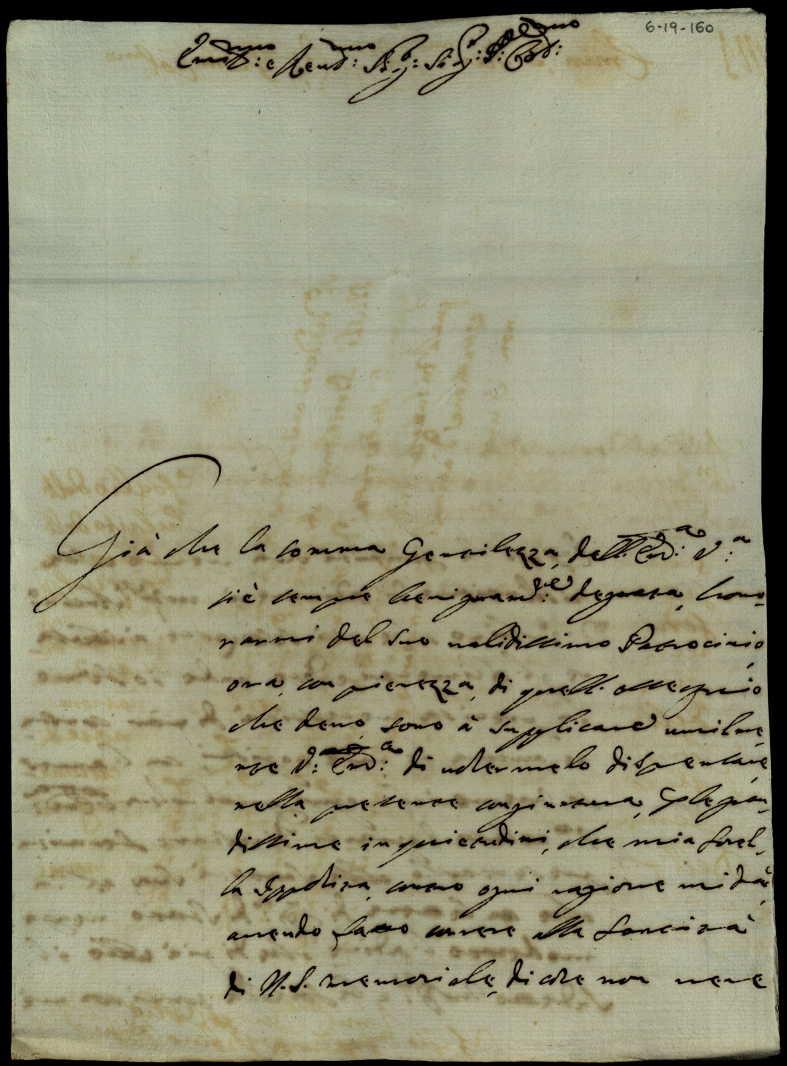 6-19-160
Em.mo: e Reu.mo: Sig.: Sig.: P.ne Col.mo:
Già che la somma Gentilezza, dell'Em.a: V.a:
si è sempre benignam.te: degnata, hono-
rarmi del suo ualidissimo Patrocinio
ora, con pienezza, di quell'ossequio
che deuo, sono à supplicare umilme,
nte V.a: Em.a: di uolermelo dispensare
nella presente congiuntura, p le gran-
dissime inquietudini, che mia sorel,
la Ippolita, contro ogni ragione mi dà,
auendo fatto correre alla Santità
di N. S. memoriale, di cose non uere